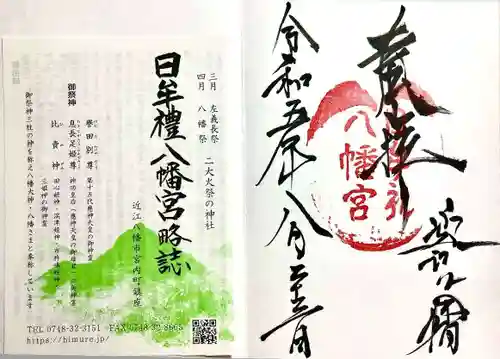 三月 左義長祭
四月 八幡祭
二大火祭の神社
日牟禮八幡宮略誌
近江八幡市宮内町鎮座
御祭神
譽田別尊 第十五代應神天皇の御神霊
息長足姫尊 神功皇后(應神天皇の御母君)の御神霊
比賣神 田心姫神・湍津姫神・市杵嶋姫神
三姫神の御神霊
御祭神三柱の神を称え八幡大神・八幡さまと奉称しています
TEL 0748-32-3151 FAX 0748-32-8665
https://himure.jp/
奉拝
八幡宮
令和五年八月二十三日